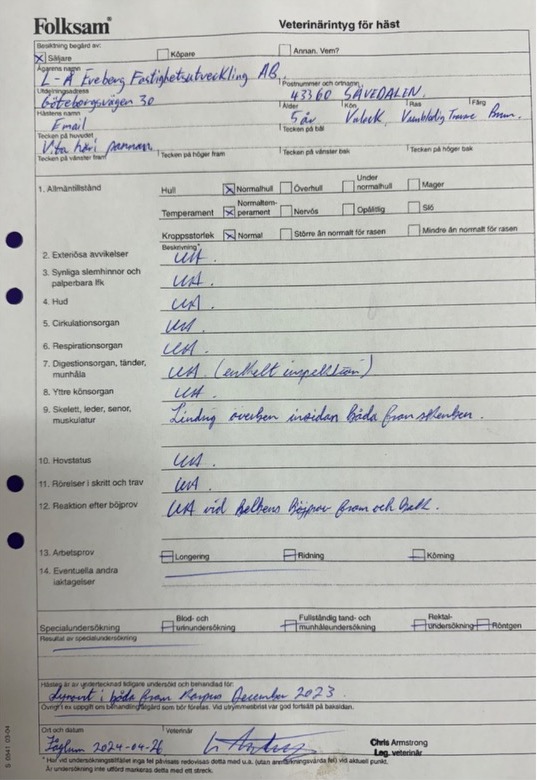 Folksam
Veterinärintyg för häst
Besiktning begärd av:
Säljare Köpare Annan. Vem?
Ägarens namn
L-Å Freberg Fastighetsutveckling AB
Utdelningsadress Postnummer och ortnamn
Göteborgsvägen 30 43360 SÄVEDALEN
Hästens namn Ålder Kön Ras Färg
Email 5 år Valack Varmblodig Travare Brun.
Tecken på huvudet Tecken på bål
Vita hår i pannan
Tecken på vänster fram Tecken på höger fram Tecken på vänster bak Tecken på höger bak
1. Allmäntillstånd Hull Normalhull Överhull Under normalhull Mager
Temperament Normaltemperament Nervös Opålitlig Slö
Kroppsstorlek Normal Större än normalt för rasen Mindre än normalt för rasen
Beskrivning*
2. Exteriösa avvikelser UA.
3. Synliga slemhinnor och palperbara lfk UA.
4. Hud UA.
5. Cirkulationsorgan UA.
6. Respirationsorgan UA.
7. Digestionsorgan, tänder, munhåla UA. (enkelt inspektion)
8. Yttre könsorgan UA.
9. Skelett, leder, senor, muskulatur Lindrig överben insidan båda framskenben.
10. Hovstatus UA.
11. Rörelser i skritt och trav UA.
12. Reaktion efter böjprov UA vid helbens böjprov fram och bak.
13. Arbetsprov Longering Ridning Körning
14. Eventuella andra iakttagelser
Specialundersökning Blod- och urinundersökning Fullständig tand- och munhåleundersökning Rektalundersökning Röntgen
Resultat av specialundersökning
Hästen är av undertecknad tidigare undersökt och behandlad för:
i båda fram Karpus December 2023.
Övrigt ex uppgift om behandling/åtgärd som bör företas. Vid utrymmesbrist var god fortsätt på baksidan.
Ort och datum Veterinär
2024-04-26
Chris Armstrong
Leg. veterinär
* Har vid undersökningstillfället inga fel påvisats redovisas detta med u.a. (utan anmärkningsvärda fel) vid aktuell punkt.
Är undersökning inte utförd markeras detta med ett streck.
S 0341 03-04